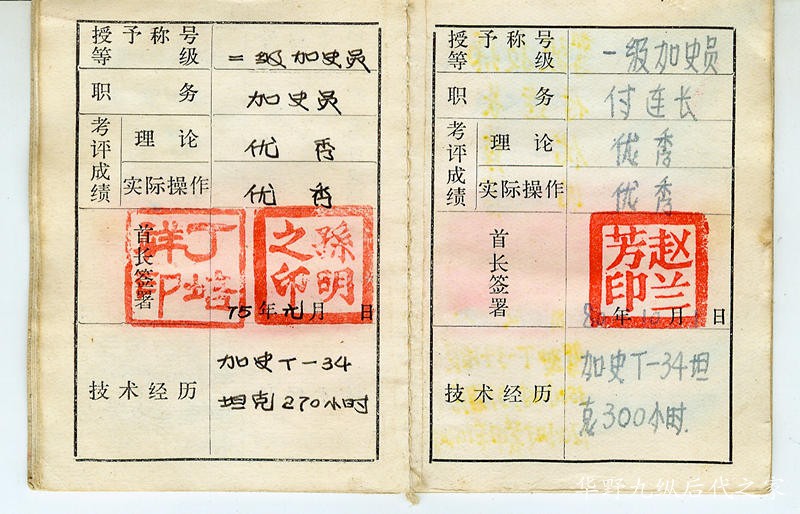 授予称号
等级
二级加史员
职务
加史员
考评成绩
理论
优秀
实际操作
优秀
首长签署
丁培祥印
孙明之印
75年元月 日
技术经历
加史T-34
坦克270小时
授予称号
等级
一级加史员
职务
付连长
考评成绩
理论
优秀
实际操作
优秀
首长签署
赵兰芳印
年
日
技术经历
加史T-34坦
克300小时.
华野九纵后代之家